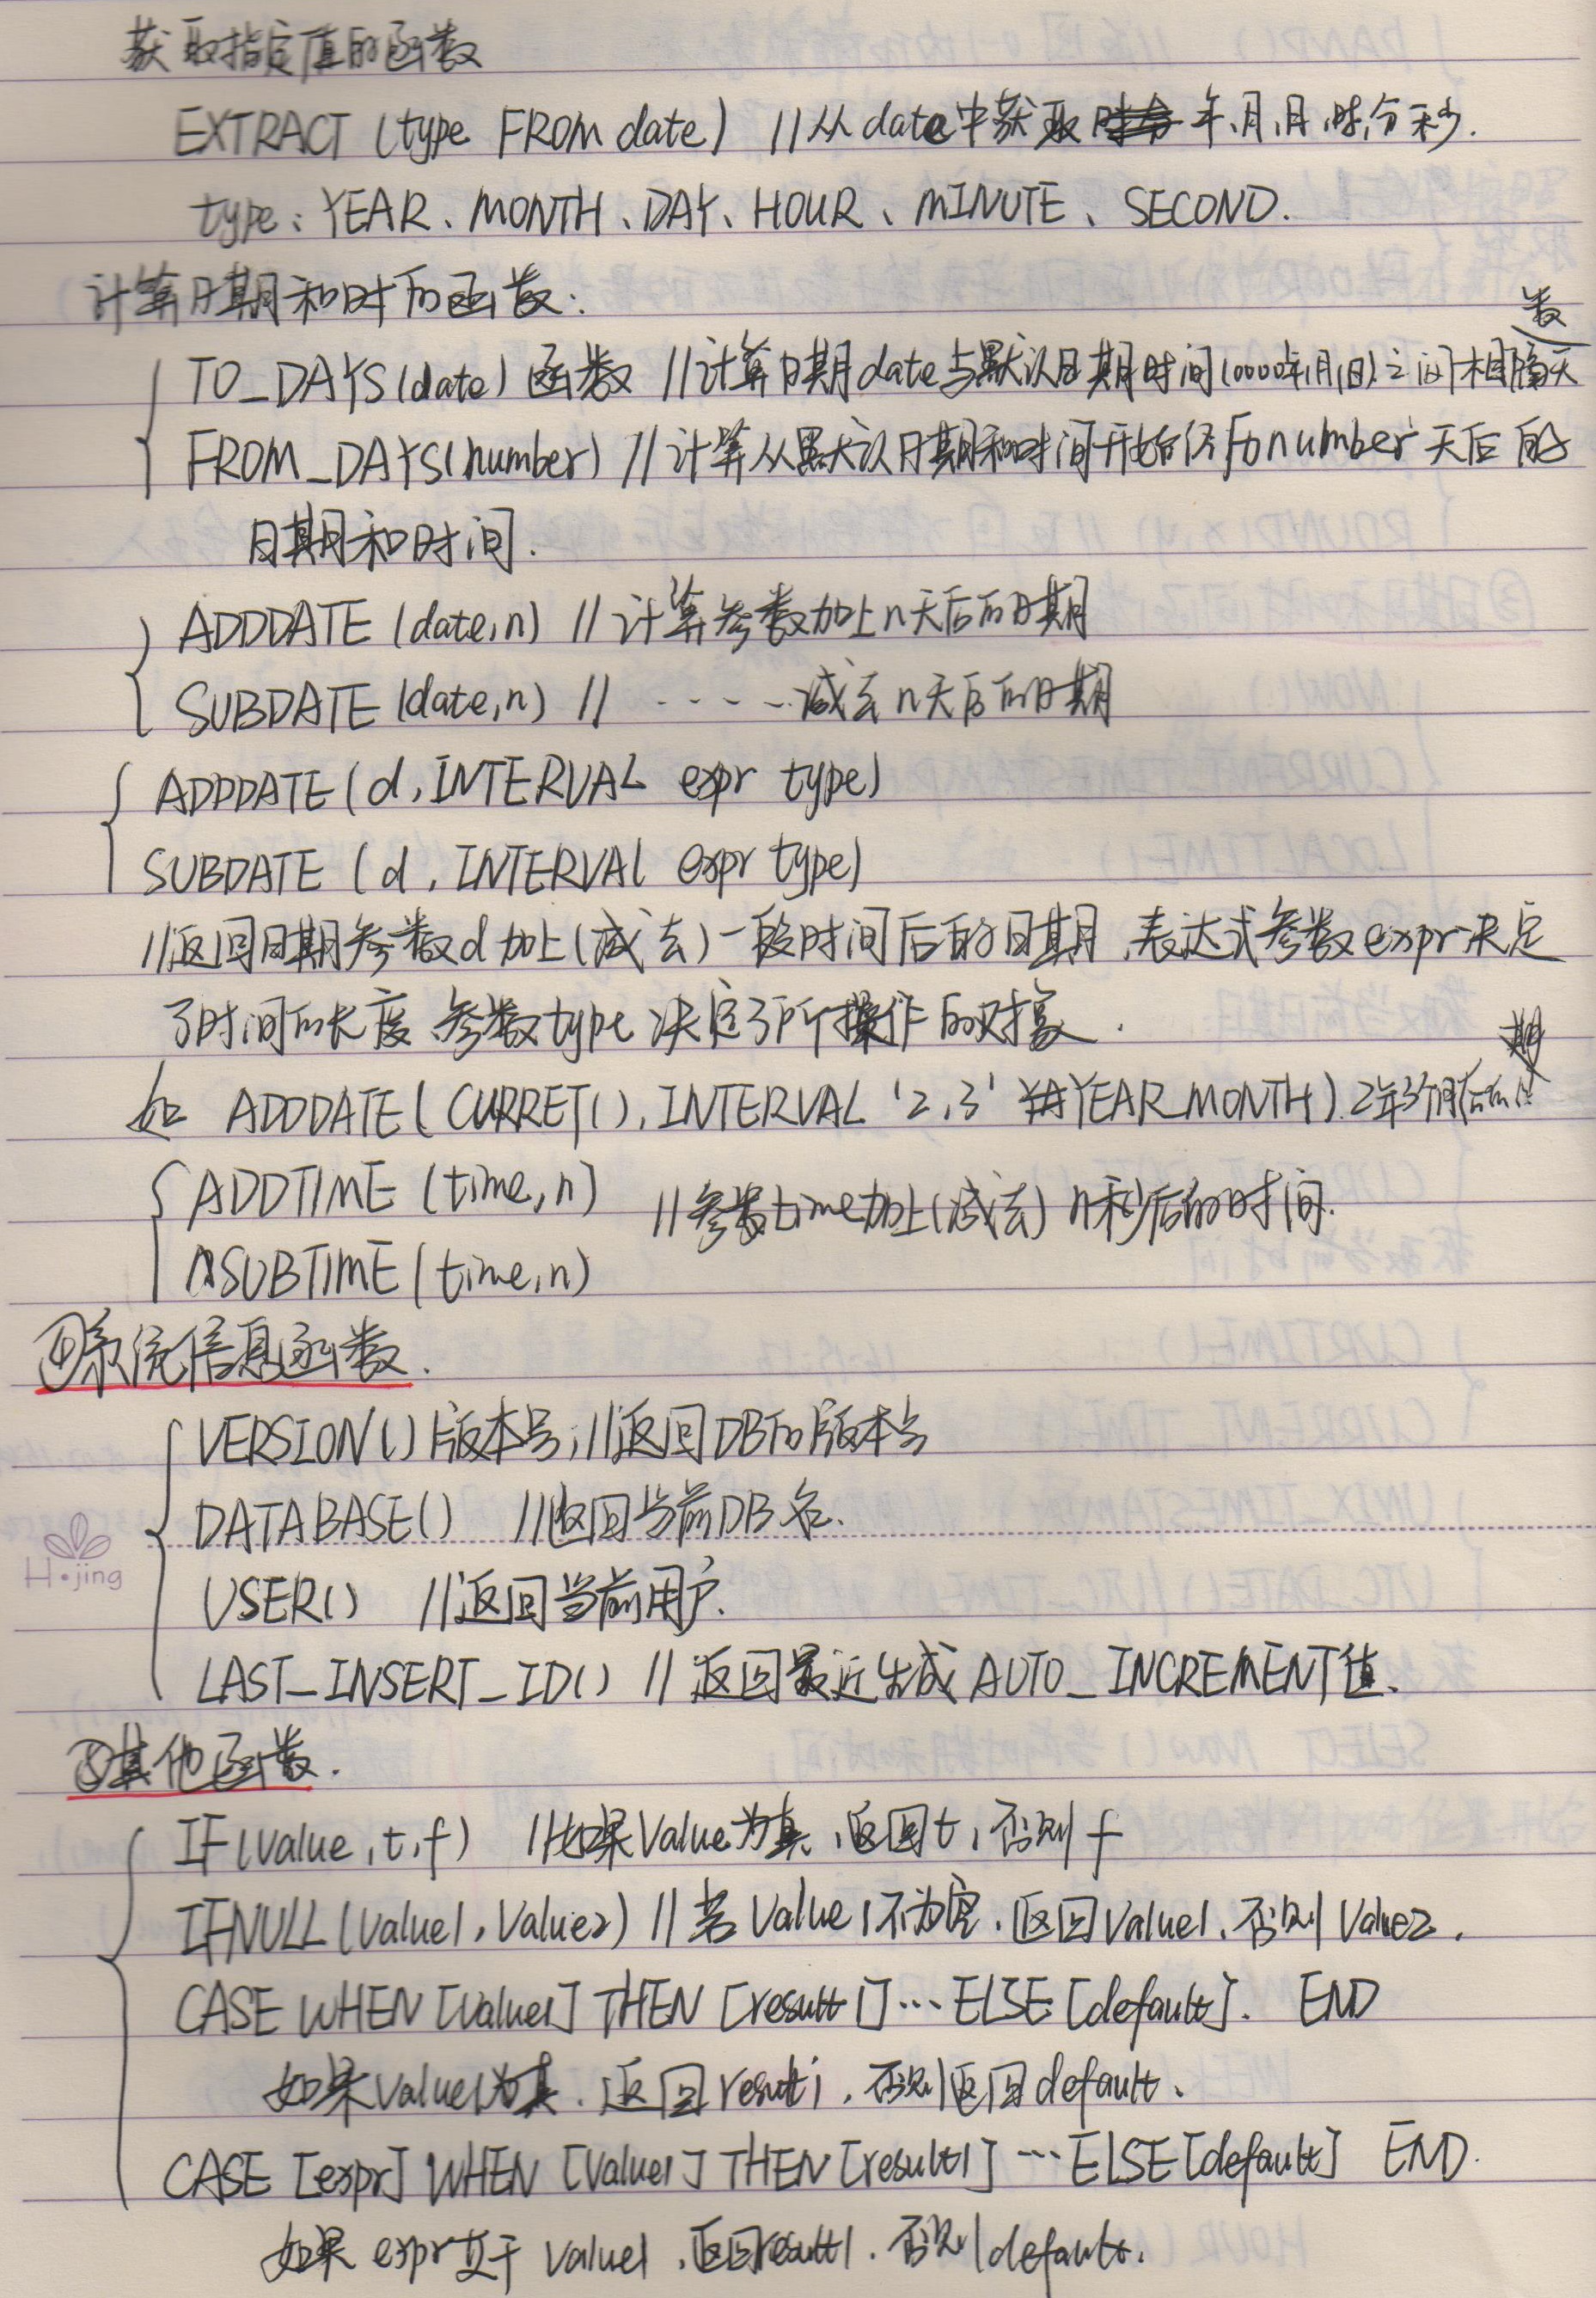 获取指定值的函数
EXTRACT (type FROM date) //从date中获取 年、月、日、时、分、秒.
type: YEAR、MONTH、DAY、HOUR、MINUTE、SECOND.
计算日期和时间的函数:
TO_DAYS(date) 函数 //计算日期date与默认日期时间(0000年1月1日)之间相隔天数
FROM_DAYS(number) //计算从默认日期和时间开始经历number天后的
日期和时间.
ADDDATE (date,n) //计算参数加上n天后的日期
SUBDATE (date,n) // ····· 减去n天后的日期
ADDDATE (d, INTERVAL expr type)
SUBDATE (d, INTERVAL expr type)
//返回日期参数d加上(减去)一段时间后的日期,表达式参数expr决定
了时间的长度,参数type决定了所操作的对象.
如 ADDDATE( CURRET(), INTERVAL '2,3' YEAR_MONTH) 2年3个月后的
ADDTIME (time,n) //参数time加上(减去) n秒后的时间.
SUBTIME (time,n)
④系统信息函数.
VERSION() 版本号; //返回DB的版本号
DATABASE() //返回当前DB名.
H·jing
USER() //返回当前用户.
LAST_INSERT_ID() //返回最近生成AUTO_INCREMENT值.
⑤其他函数.
IF(value,t,f) //如果Value为真,返回t,否则f
IFNULL(value1,Value2) //若Value1不为空,返回value1,否则Value2.
CASE WHEN [value1] THEN [result1]···ELSE [default]. END
如果value1为真,返回result1,否则返回default.
CASE [expr] WHEN [value1] THEN [result1]···ELSE [default] END.
如果 expr等于 value1,返回result1.否则default.